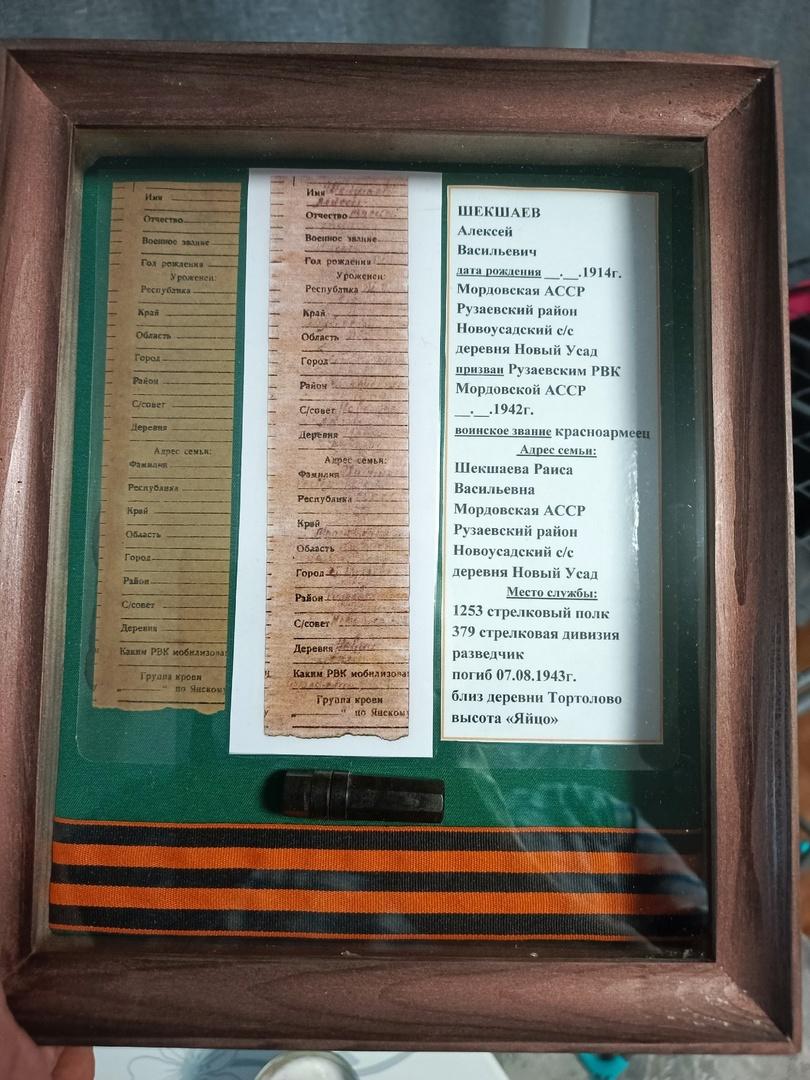 Имя
Отчество
Военное звание
Год рождения
Уроженец:
Республика
Край
Область
Город
Район
С/совет
Деревня
Адрес семьи:
Фамилия
Республика
Край
Область
Город
Район
С/совет
Деревня
Каким РВК мобилизова
Группа крови
" по Янском
Имя
Отчество
Военное звание
Год рождения
Уроженец:
Республика
Край
Область
Город
Район
С/совет
Деревня
Адрес семьи:
Фамилия
Республика
Край
Область
Город
Район
С/совет
Деревня
Каким РВК мобилизова
Группа крови
" по Янском
ШЕКШАЕВ
Алексей
Васильевич
дата рождения __.__.1914г.
Мордовская АССР
Рузаевский район
Новоусадский с/с
деревня Новый Усад
призван Рузаевским РВК
Мордовской АССР
__.__.1942г.
воинское звание красноармеец
Адрес семьи:
Шекшаева Раиса
Васильевна
Мордовская АССР
Рузаевский район
Новоусадский с/с
деревня Новый Усад
Место службы:
1253 стрелковый полк
379 стрелковая дивизия
разведчик
погиб 07.08.1943г.
близ деревни Тортолово
высота «Яйцо»